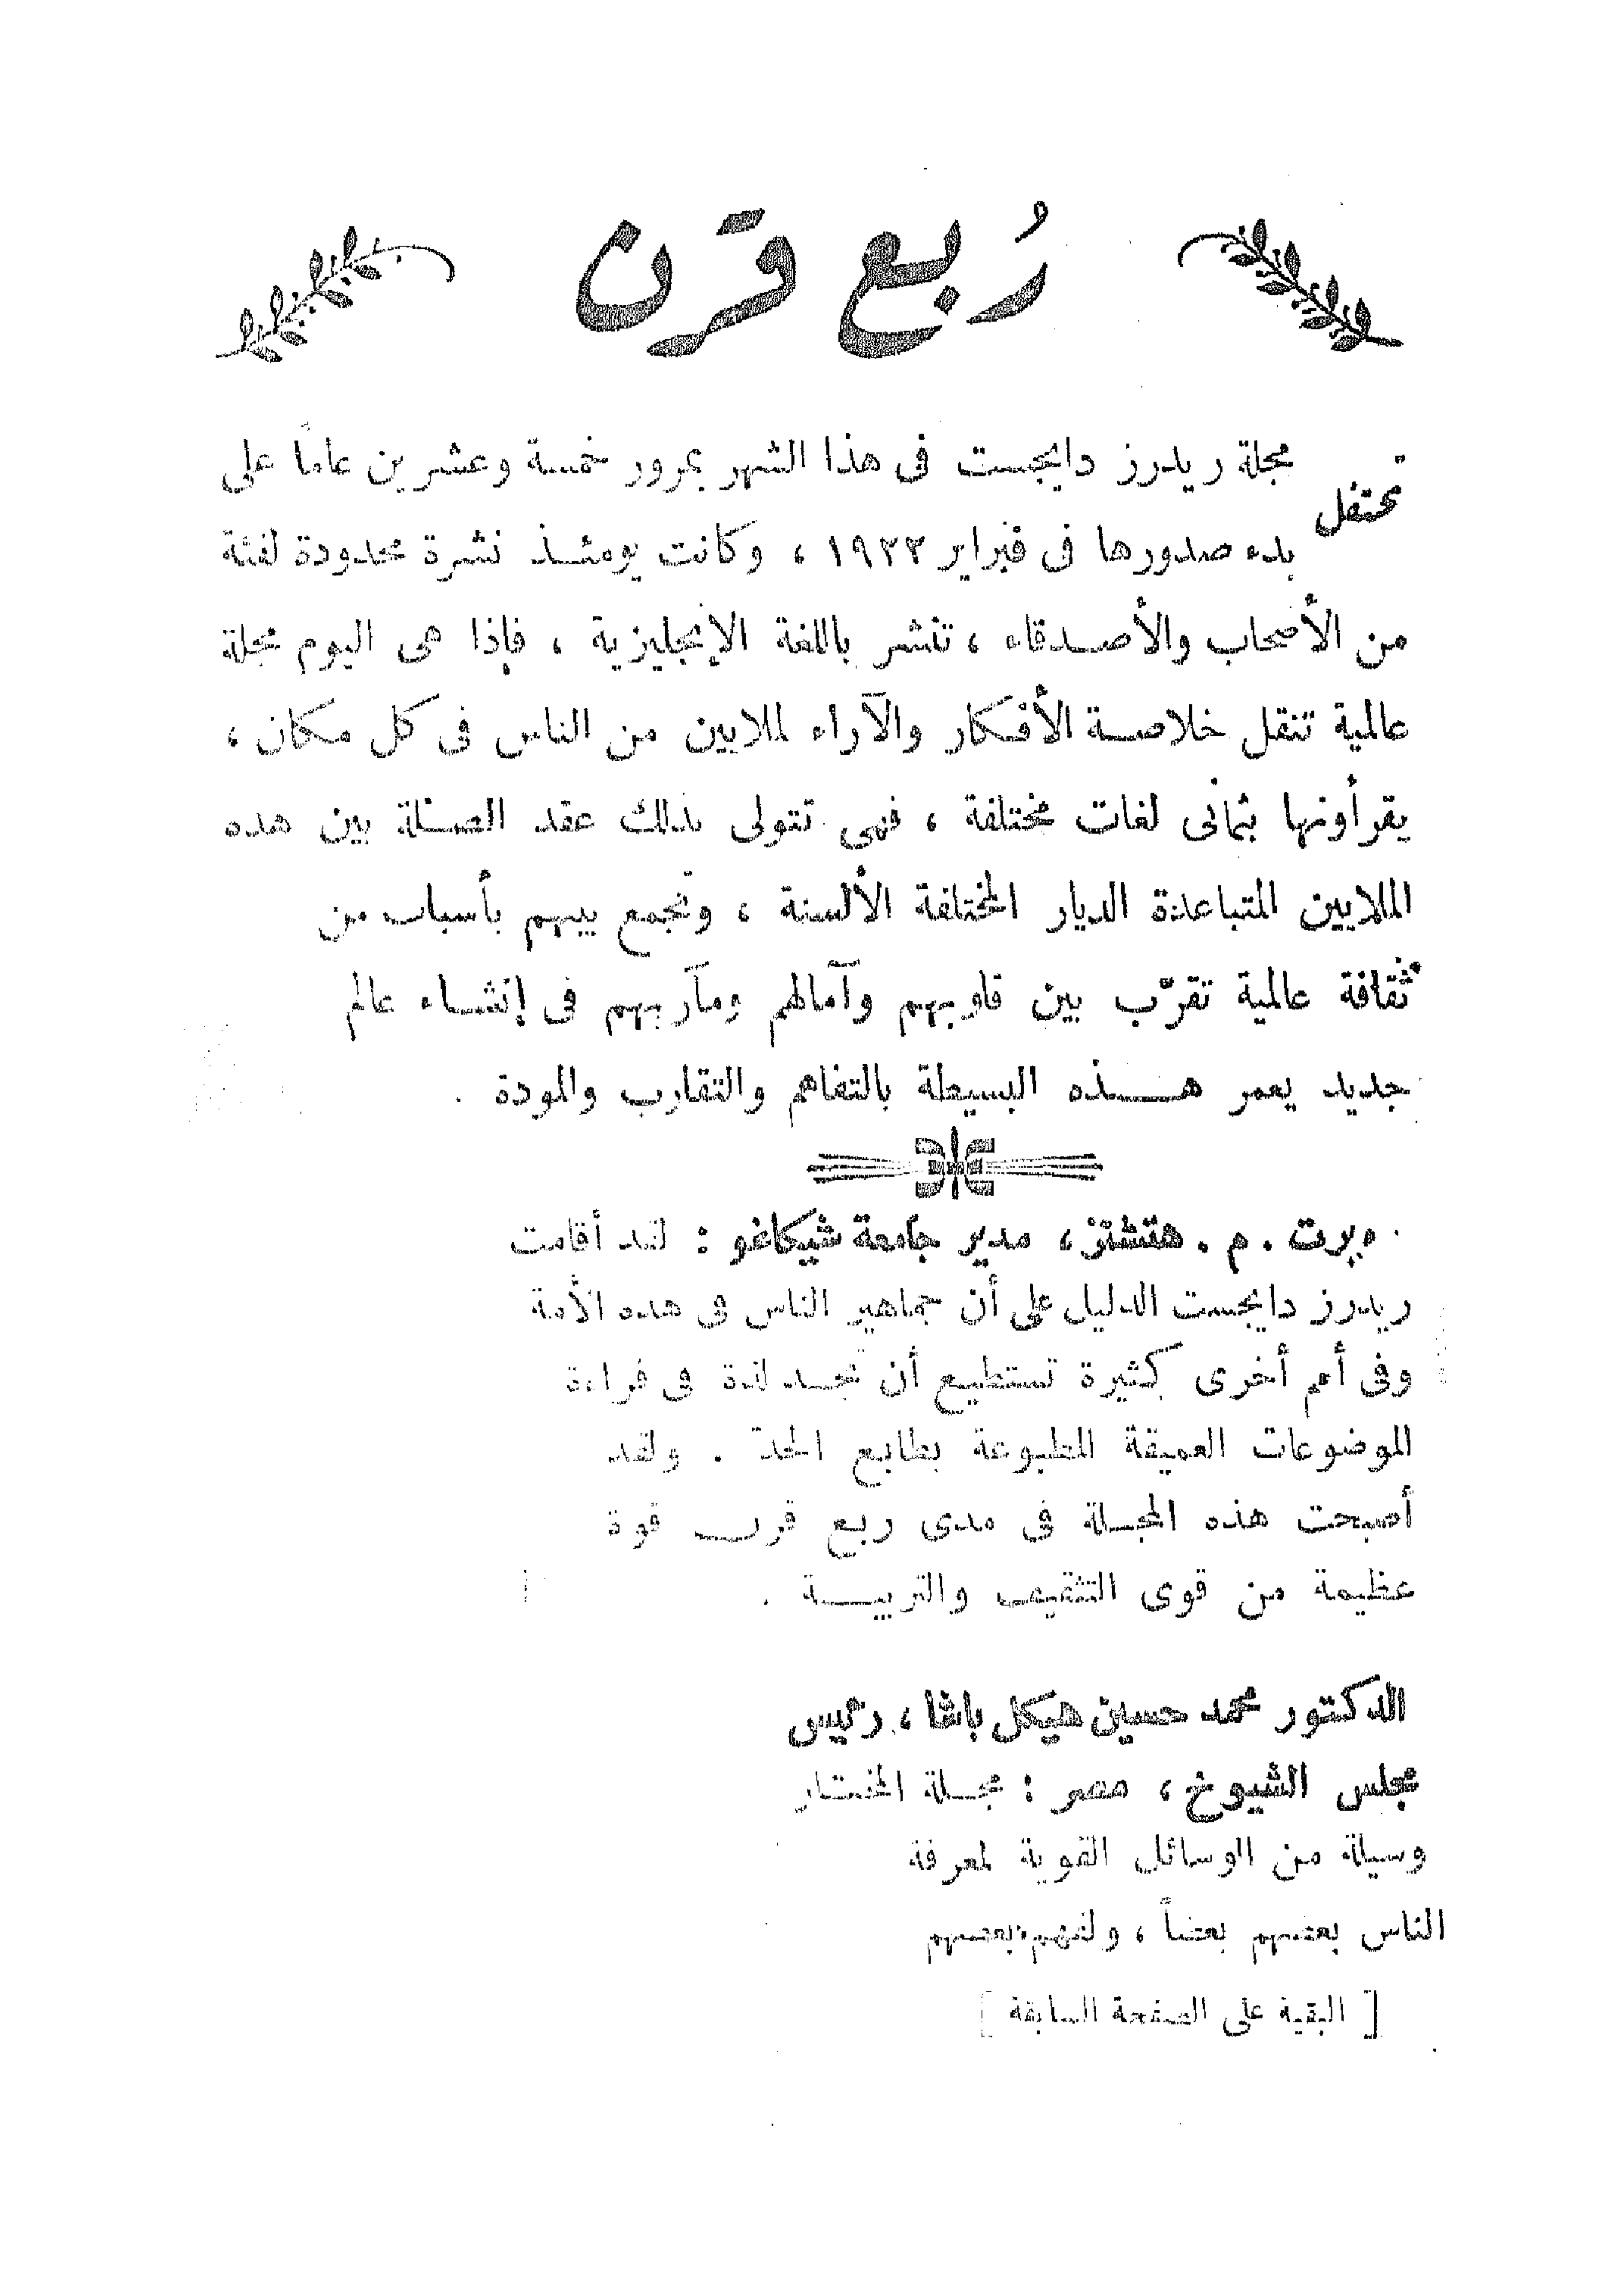 رُبع قرن
تحتفل مجلة ريدرز دايجست فى هذا الشهر بمرور خمسة وعشرين عاماً على
بدء صدورها فى فبراير ١٩٢٢ ، وكانت يومئذ نشرة محدودة لفئة
من الأصحاب والأصدقاء ، تنشر باللغة الإنجليزية ، فإذا هى اليوم مجلة
عالمية تنقل خلاصة الأفكار والآراء لملايين من الناس فى كل مكان ،
يقرأونها بثمانى لغات مختلفة ، فهى تتولى بذلك عقد الصلة بين هذه
الملايين المتباعدة الديار المختلفة الألسنة ، وتجمع بينهم بأسباب من
ثقافة عالمية تقرّب بين قلوبهم وآمالهم ومآربهم فى إنشاء عالم
جديد يعمر هذه البسيطة بالتفاهم والتقارب والمودة .
م . هتشنز ، مدير جامعة شيكاغو : لقد أقامت
ريدرز دايجست الدليل على أن جماهير الناس فى هذه الأمة
وفى أمم أخرى كثيرة تستطيع أن تجد لذة فى قراءة
الموضوعات العميقة المطبوعة بطابع الجدّ . ولقد
أصبحت هذه المجلة فى مدى ربع قرن قوة
عظيمة من قوى التثقيف والتربية .
الدكتور محمد حسين هيكل باشا ، رئيس
مجلس الشيوخ ، مصر : مجلة المختار
وسيلة من الوسائل القوية لمعرفة
الناس بعضهم بعضاً ، ولفهم بعضهم
[ البقية على الصفحة السابقة ]